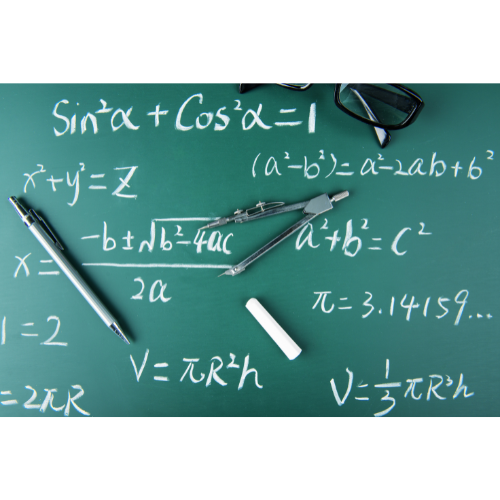 Sin²α + Cos²α = 1
x² + y² = Z
(a² - b²) = a² - 2ab + b²
x = -b ± √b² - 4ac / 2a
a² + b² = c²
π = 3.14159...
1 = 2
V = πR²h
= 2πR
V = 1/3 πR³h